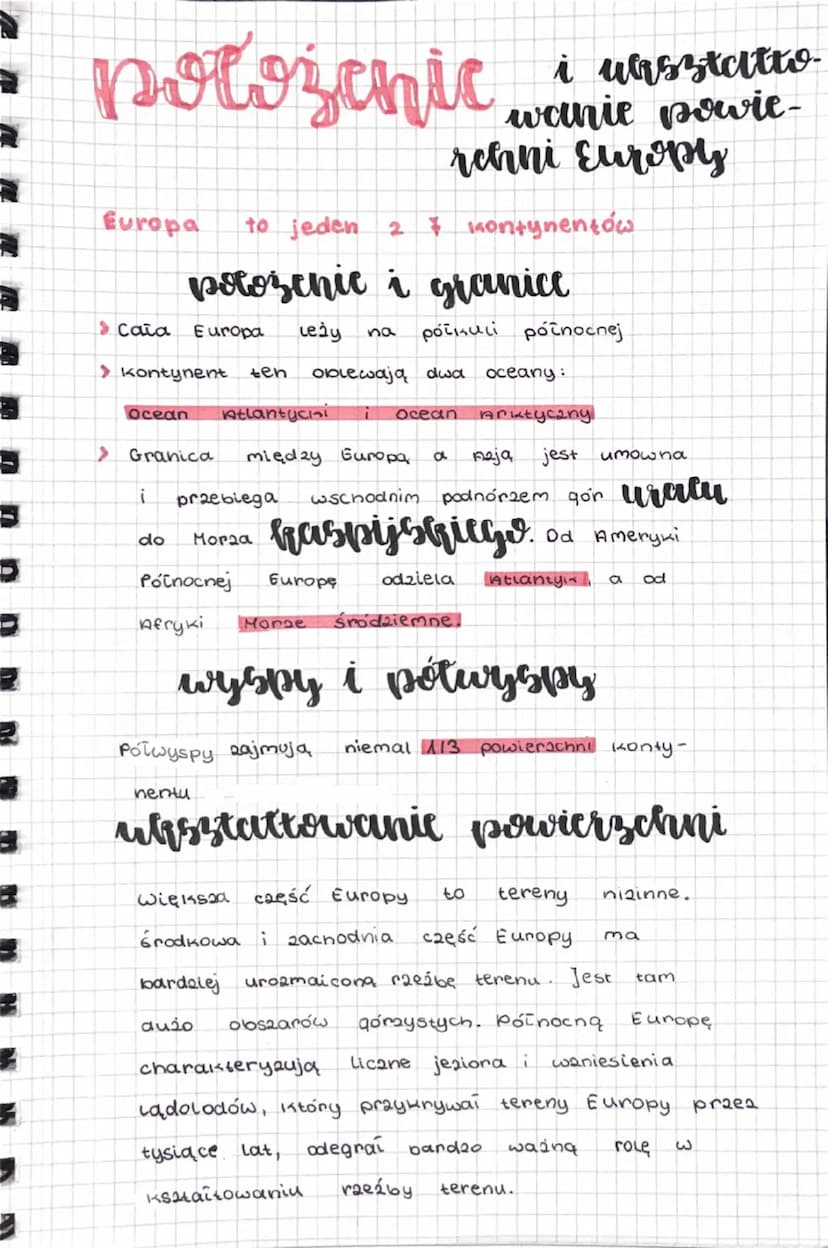 położenie i ukształto-
wanie powie-
rzchni Europy
Europa to jeden z 7 kontynentów
położenie i granice
› Cała Europa leży na półkuli północnej
› Kontynent ten oblewają dwa oceany:
Ocean Atlantycki i Ocean Arktyczny
› Granica między Europą a Azją jest umowna
i przebiega wschodnim podnórzem gór Uralu
do Morza Kaspijskiego. Od Ameryki
Północnej Europę odziela Atlantyk, a od
Afryki Morze śródziemne.
wyspy i półwyspy
Półwyspy zajmują niemal 1/3 powierzchni konty-
nentu
ukształtowanie powierzchni
Większa część Europy to tereny nizinne.
środkowa i zachodnia część Europy ma
bardziej urozmaiconą rzeźbę terenu. Jest tam
dużo obszarów górzystych. Północną Europę
charakteryzują liczne jeziora i wzniesienia
Lądolodów, który przykrywał tereny Europy przez
tysiące lat, odegrał bardzo ważną rolę w
kształtowaniu rzeźby terenu.